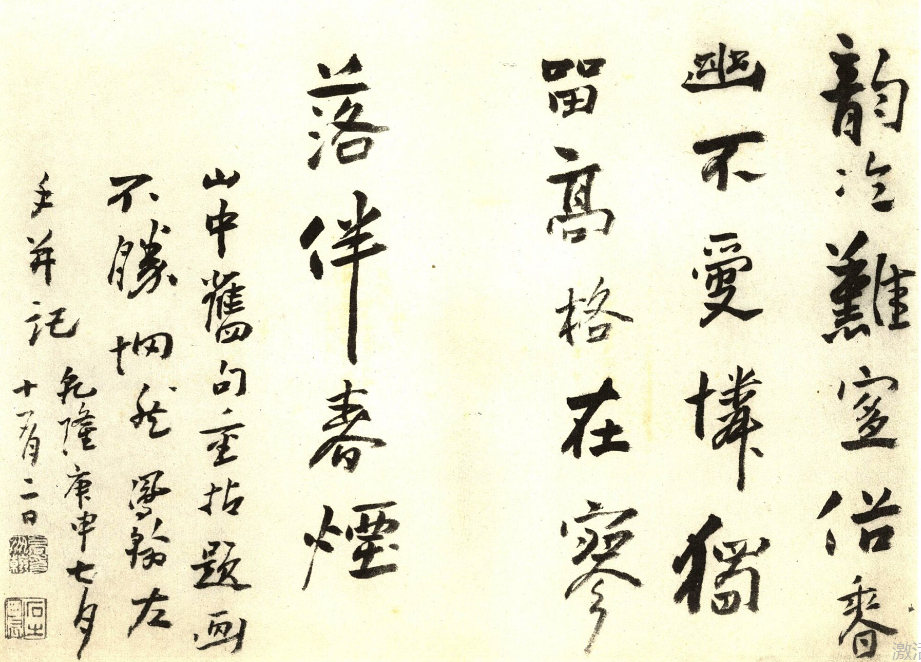 韵冷難宜俗香
幽不受憐獨
留高格在寥
落伴春煙
山中舊句重拈題画
不勝惘然鳳翰左
手并記
乾隆庚申七月
十有二日
激活